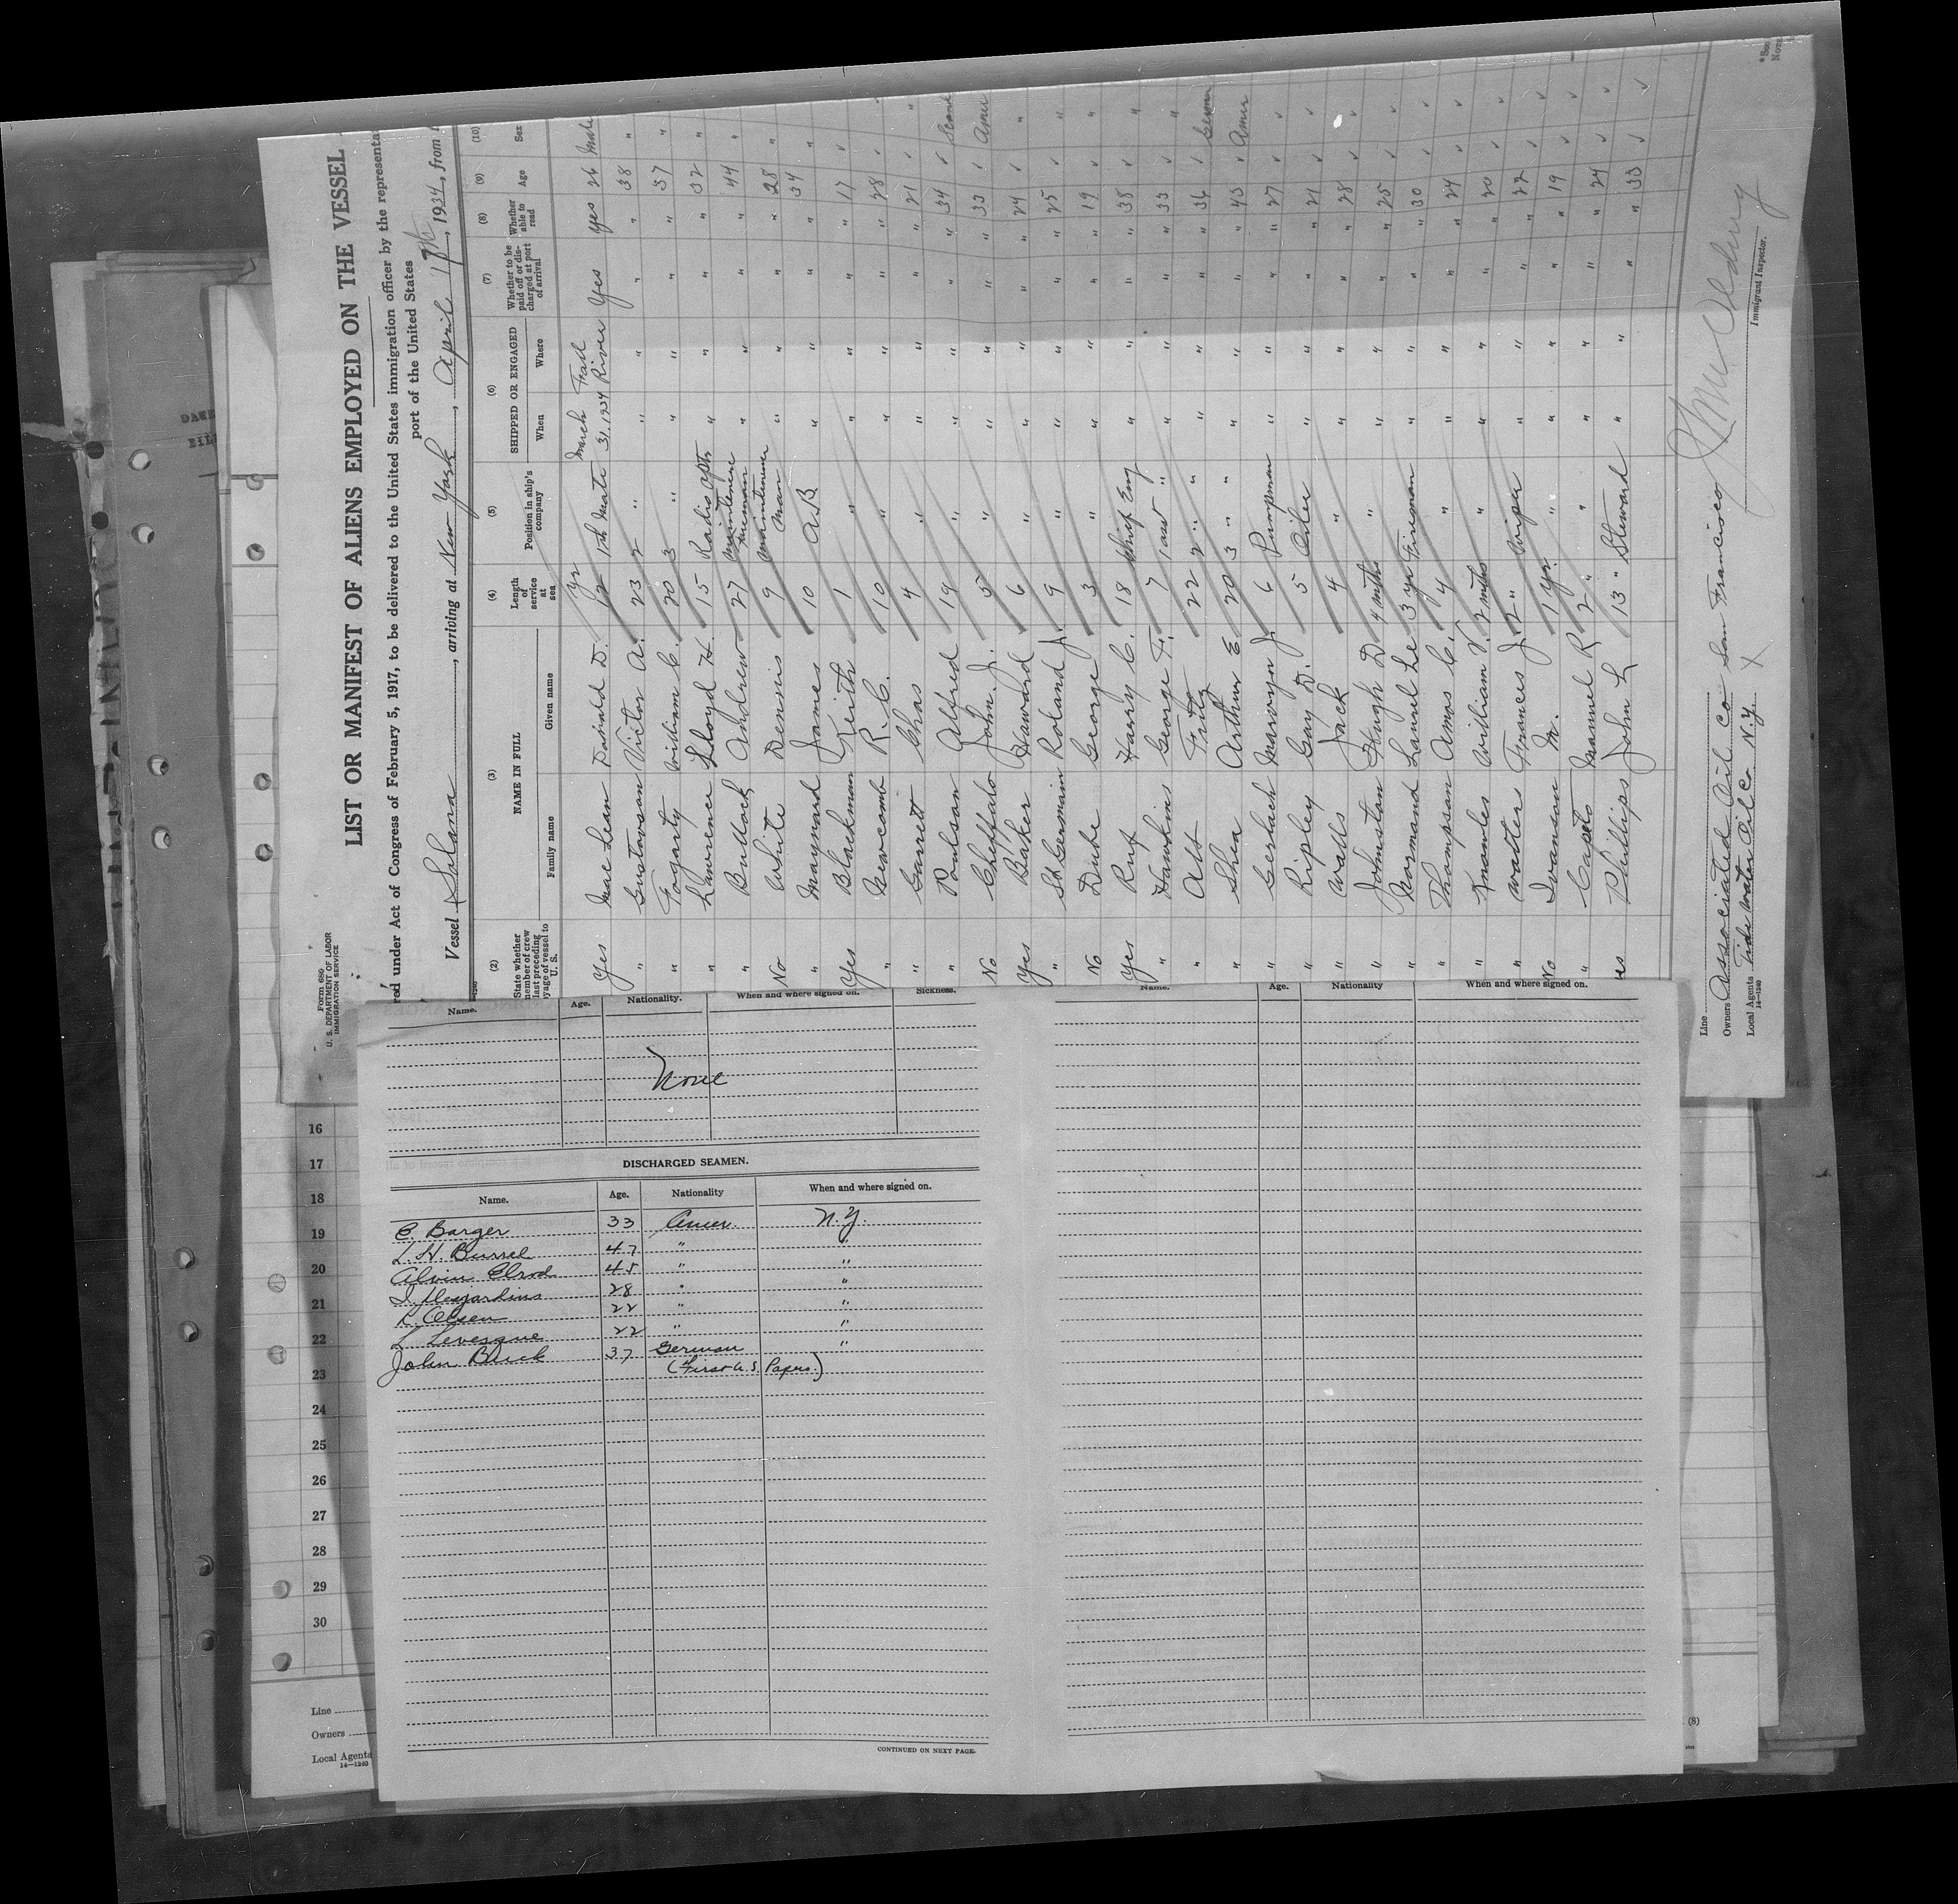 Form 689
U. S. DEPARTMENT OF LABOR
IMMIGRATION SERVICE
LIST OR MANIFEST OF ALIENS EMPLOYED ON THE VESSEL
red under Act of Congress of February 5, 1917, to be delivered to the United States immigration officer by the representa
port of the United States
Vessel Solana, arriving at New York, April 17th, 1934, from
(2) (3) (4) (5) (6) (7) (8) (9) (10)
State whether member of crew last preceding voyage of vessel to U. S. NAME IN FULL Family name Given name Length of service at sea Position in ship's company SHIPPED OR ENGAGED When Where Whether to be paid off or discharged at port of arrival Whether able to read Age Sex
Yes Mac Lean Donald D. 12 yr 1st Mate March 31, 1934 Fall River Yes Yes 26 Male
" Gustavson Victor A. 23 2 " " " " " 38 "
" Fogarty William C. 20 3 " " " " " 37 "
" Lawrence Lloyd H. 15 Radio Optr " " " " 32 "
" Bullock Andrew 27 Maintenence Fireman " " " " 44 "
No White Dennis 9 Maintenence man " " " " 28 "
" Maynard James 10 A.B. " " " " 34 "
Yes Blackmon Keith 1 " " " " " 17 ✓
" Newcomb R. C. 10 " " " " " 28 ✓
" Garrett Chas 4 " " " " " 21 ✓ "
" Poulson Alfred 19 " " " " " 34 ✓ Scand
No John J. 5 " " " " " 33 ✓ Amer
Yes Baker Howard 6 " " " " " 24 ✓ "
" St Germain Roland J. 9 " " " " " 25 ✓ "
No Dube George 3 " " " " " 19 ✓ "
Yes Ruf Harry C. 18 Chief Eng " " " " 38 ✓ "
" Hawkins George F. 7 1 asst " " " " " 33 ✓ "
" Adt Fritz 22 2 " " " " " " 36 ✓ German
" Shea Arthur E 20 3 " " " " " " 43 ✓ Amer
" Gerlach Marvyn J. 6 Pumpman " " " " 27 ✓ ✓
" Ripley Gay D. 5 Oiler " " " " 21 ✓ ✓
" Watts Jack 4 " " " " " 28 ✓ ✓
" Johnston Hugh D 4 mths " " " " " 25 ✓ ✓
" Normand Lannel Le 3 yr Fireman " " " " 30 ✓ ✓
" Thompson Amos C. 4 " " " " " 24 ✓ ✓
" Knowles William V. 2 mths " " " " " 20 ✓ ✓
" Watters Frances J. 2 " Wiper " " " " 22 ✓ ✓
No M. 1 yr. " " " " " 19 ✓ ✓
" Manuel R 2 " " " " " " 24 ✓ ✓
es Phillips John L 13 " Steward " " " " 33 ✓ ✓
Line
Owners Associated Oil Co San Francisco
Local Agents Tide Water Oil Co N.Y. X
14—1240
Immigrant Inspector.
Name. Age. Nationality. When and where signed on. Sickness.
None
DISCHARGED SEAMEN.
Name. Age. Nationality When and where signed on.
E. Barger 33 Amer. N.Y.
L. H. Burrel 47 " "
Alvin Elrod 45 " "
I. Desjardins 28 " "
K. Olsen 22 " "
L Levesque 22 " "
John Buck 37 German "
(First U.S. Papers.)
CONTINUED ON NEXT PAGE.
Name. Age. Nationality When and where signed on.
16
17
18
19
20
21
22
23
24
25
26
27
28
29
30
Line
Owners
Local Agents
14—1240
(8)